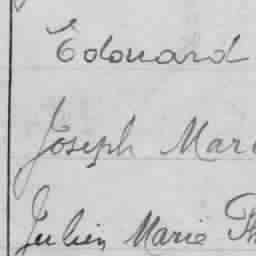 Edouard
Joseph Mar
Julien Marie